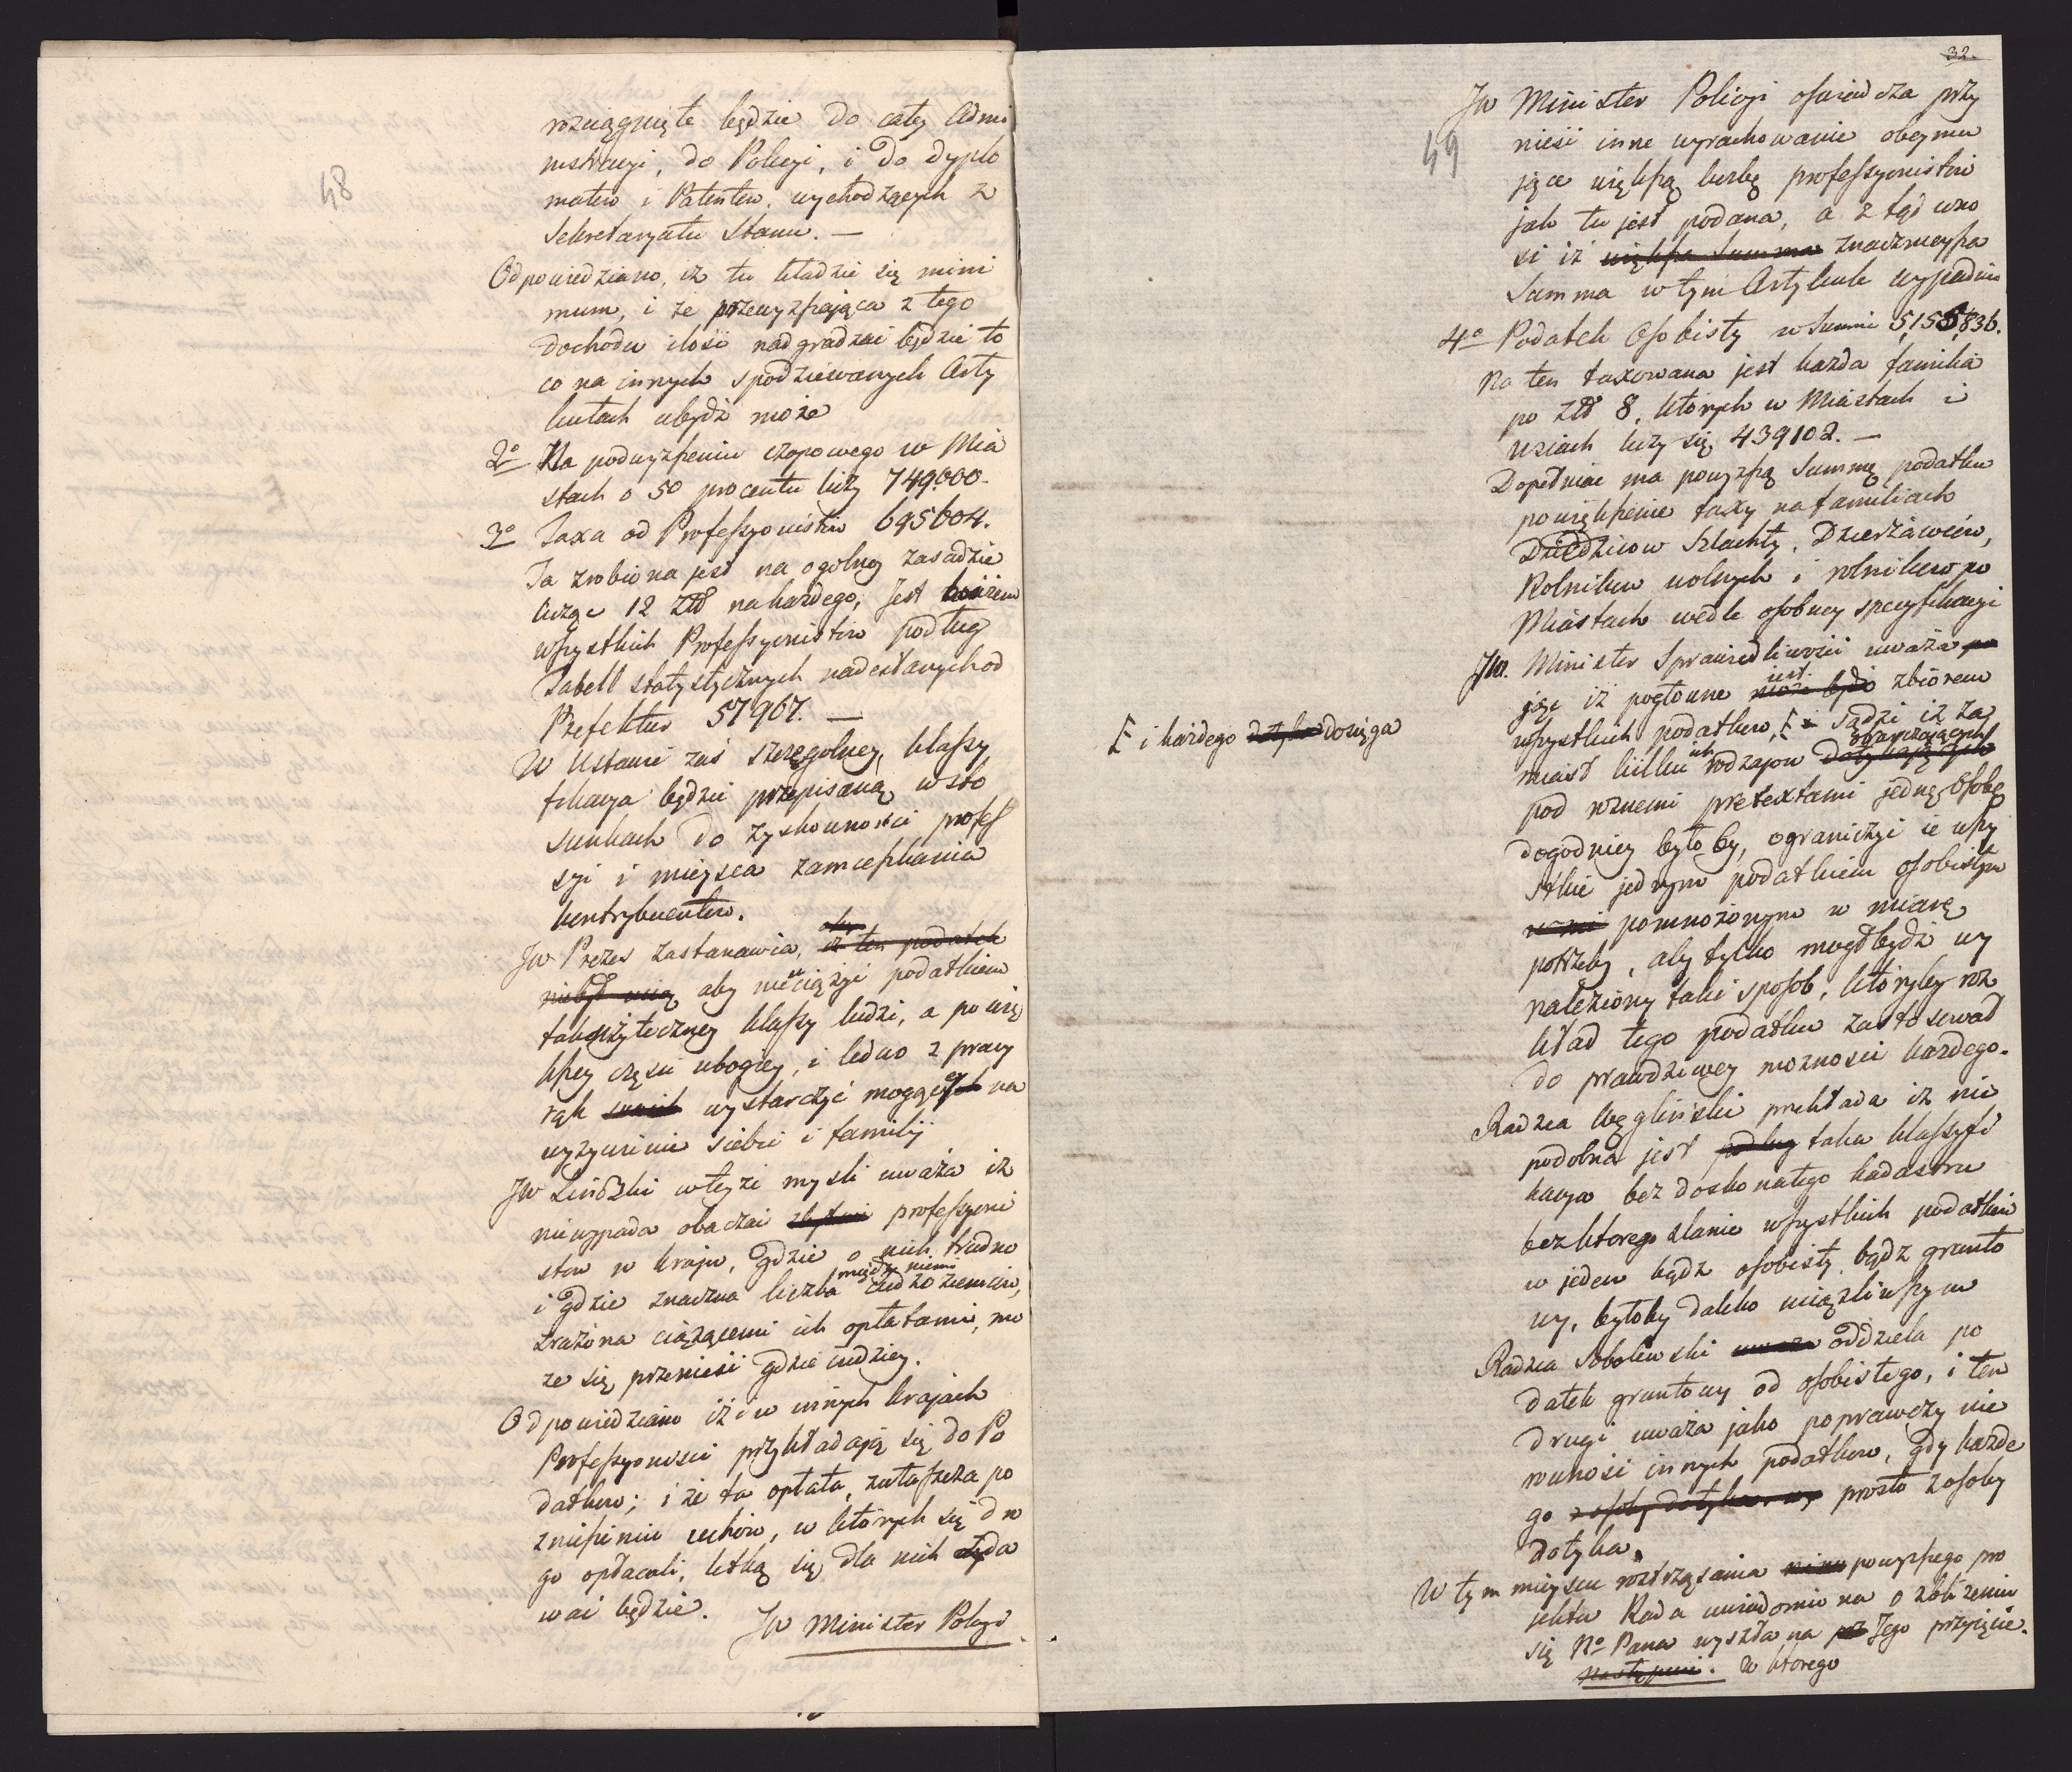 48
rozciągnięte będzie do całey Admi
nistracyi, do Policyi, i do dyplo
matów i Patentów, wychodzących z
Sekretaryatu Stanu. —
Odpowiedziano, iż tu kładzie się mini
mum, i że przewyzszaiąca z tego
dochodu ilość nadgradzać będzie to
co na innych spodziewanych Arty
kułach ubydź może
2o Na podwyzszeniu czopowego w Mia
stach o 50 procentu liczy 749.000.
3o Taxa od Professyonistów 695604.
Ta zrobiona jest na ogolney zasadzie
licząc 12 Złł na każdego, Jest
wszystkich Professyonistów podług
Tabell statystycznych nadesłanych od
Prefektur 57967. —
W Ustawie zaś szczegolney, klassy
fikacya będzie przepisaną w sto
sunkach do zyskowności profes
syi i mieysca zamieszkania
kontrybuentów.
JW Prezes zastanawia, iż ten podatek
aby nie uciążyć podatkiem
tak użyteczney klassy ludzi, a po wię
kszey części ubogiey, i ledwo z pracy
rąk swoich wystarczyć mogącey na
wyżywienie siebie i familij
JW Liński w teyże mysli uważa iż
nie wypada obarczać zbytnie professyoni
stów w kraju, gdzie o nich trudno
i gdzie znaczna liczba między niemi cudzoziemców,
zrażona ciążącemi ich opłatami, mo
że się przenieść gdzie indziey.
Odpowiedziano iż i w innych krajach
Professyoniści przykładają się do Po
datków; i że ta opłata, zwłaszcza po
zniesieniu cechów, w których się dro
go opłacali, lekką się dla nich wyda
wać będzie.
JW Minister Policyi
32.
49
JW Minister Policyi oświadcza przy
nieść inne wyrachowanie obeymu
jące większą liczbę professyonistów
jak tu jest podana, a z tąd wno
si iż większa Summa znacznieysza
Summa w tym Artykule wypadnie
4o Podatek Osobisty w Summie 5,155,836.
Na ten taxowana jest każda familia
po Złł 8, których w Miastach i
wsiach liczy się 439102. —
Dopełniać ma powyzszą Summę podatku
powiększenie taxy na familiach
Dziedziców Szlachty, Dzierżawców,
Rolników wolnych i rolników po
Miastach wedle osobney specyfikacyi
JW. Minister Sprawiedliwości uważa
jąc iż pogłowne może bydź jest zbiorem
wszystkich podatków, E sądzi iż za
miast kilku ich rodzajow dotykających obarczających
pod roznemi pretextami jednę osobę
dogodniey było by, ograniczyć je wszy
stkie jednym podatkiem osobistym
pomnożonym w miarę
potrzeby, aby tylko mogł bydź wy
naleziony taki sposob, któryby roz
kład tego podatku zastosował
do prawdziwey możności każdego.
E i każdego dotyka dosięga
Radzca Węgliński przekłada iż nie
podobna jest podług taka klassyfi
kacya bez doskonałego kadastru
bez ktorego zlanie wszystkich podatków
w jeden bądź osobisty, bądź grunto
wy, byłoby daleko uciążliwszym
Radzca Sobolewski uważa oddziela po
datek gruntowy od osobistego, i ten
drugi uważa jako poprawczy nie
rowności innych podatków, gdy każde
go z osoby dotyka prosto z osoby
dotyka.
W tym mieyscu rozstrząsania powyzszego pro
jektu Rada uwiadomiona o zbliżeniu
się No Pana wyszła na Jego przyjęcie.
następuie. w ktorego